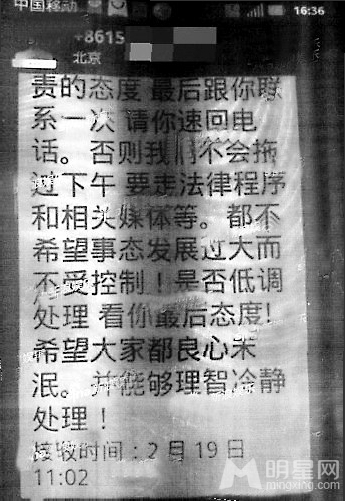 中国移动 16:36
+8615
北京
责的态度 最后跟你联
系一次 请你速回电
话。否则我们不会拖
过下午 要走法律程序
和相关媒体等。都不
希望事态发展过大而
不受控制！是否低调
处理 看你最后态度！
希望大家都良心未
泯。并能够理智冷静
处理！
接收时间：2月19日
11:02
明星网
mingxing.com